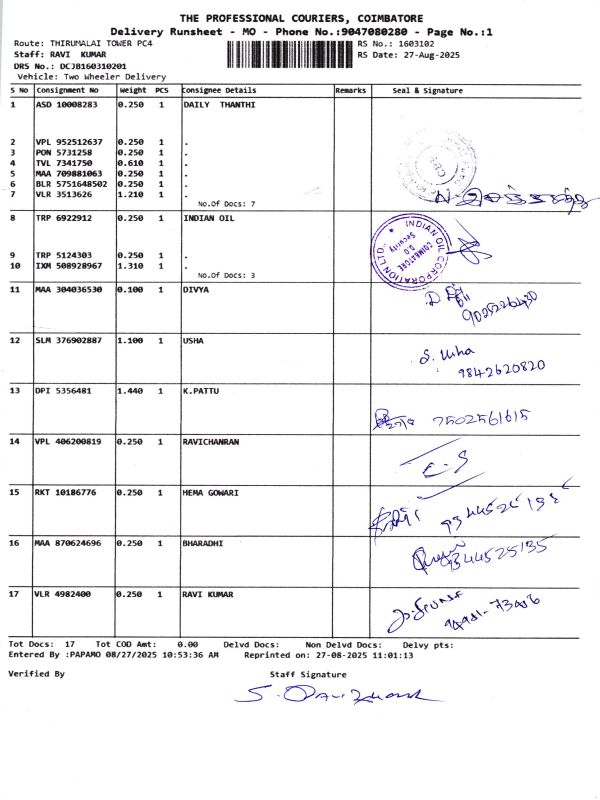 THE PROFESSIONAL COURIERS, COIMBATORE
Delivery Runsheet - MO - Phone No.:9047080280 - Page No.:1
Route: THIRUMALAI TOWER PC4 RS No.: 1603102
Staff: RAVI KUMAR RS Date: 27-Aug-2025
DRS No.: DCJB160310201
Vehicle: Two Wheeler Delivery
S No Consignment No Weight PCS Consignee Details Remarks Seal & Signature
1 ASD 10008283 0.250 1 DAILY THANTHI
2 VPL 952512637 0.250 1 .
3 PON 5731258 0.250 1 .
4 TVL 7341750 0.610 1 .
5 MAA 709881063 0.250 1 .
6 BLR 5751648502 0.250 1 .
7 VLR 3513626 1.210 1 .
No.Of Docs: 7
8 TRP 6922912 0.250 1 INDIAN OIL
INDIAN OIL CORPORATION LTD.,
COIMBATORE
D.O
Security
9 TRP 5124303 0.250 1 .
10 IXM 508928967 1.310 1 .
No.Of Docs: 3
11 MAA 304036530 0.100 1 DIVYA
9025226430
12 SLM 376902887 1.100 1 USHA
S. Usha
9842620820
13 DPI 5356481 1.440 1 K.PATTU
7502561615
14 VPL 406200819 0.250 1 RAVICHANRAN
15 RKT 10186776 0.250 1 HEMA GOWARI
16 MAA 870624696 0.250 1 BHARADHI
9344525135
17 VLR 4982400 0.250 1 RAVI KUMAR
Tot Docs: 17 Tot COD Amt: 0.00 Delvd Docs: Non Delvd Docs: Delvy pts:
Entered By :PAPAMO 08/27/2025 10:53:36 AM Reprinted on: 27-08-2025 11:01:13
Verified By Staff Signature